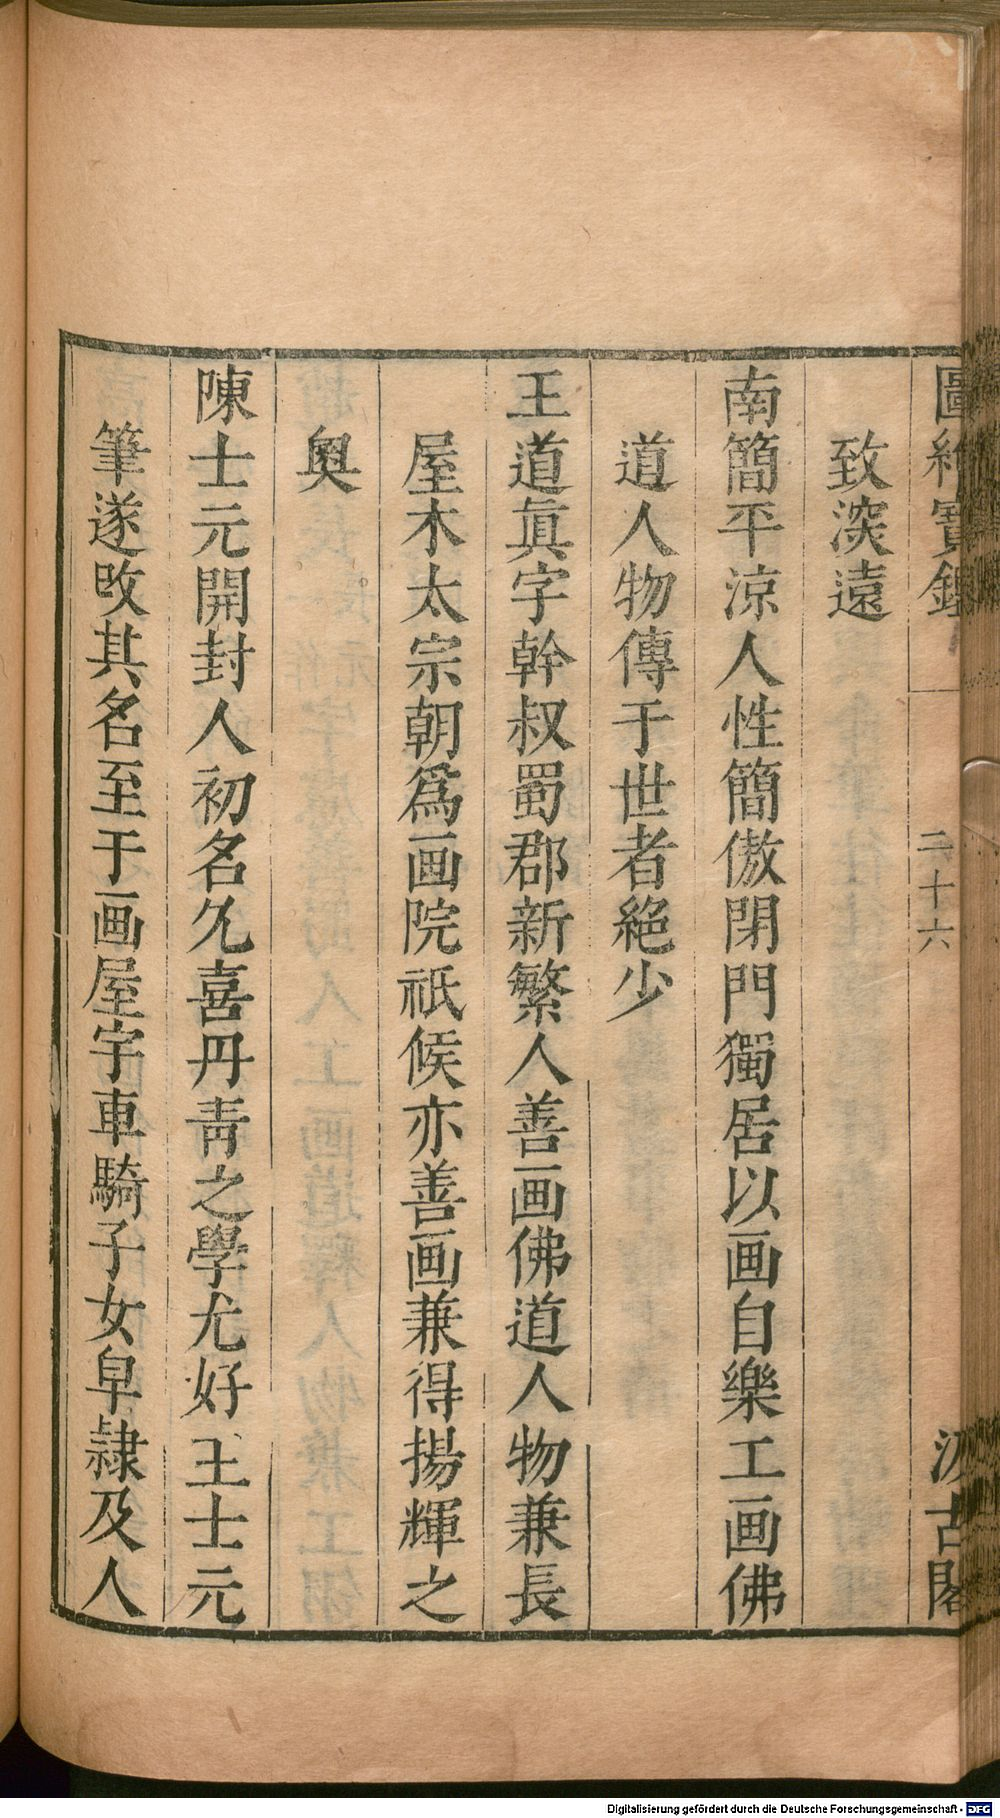 圖繪寶鑑
二十六
汲古閣
致深遠
南簡平涼人性簡傲閉門獨居以画自樂工画佛
道人物傳于世者絕少
王道眞字幹叔蜀郡新繁人善画佛道人物兼長
屋木太宗朝爲画院祇候亦善画兼得揚輝之
奧
陳士元開封人初名允喜丹青之學尤好王士元
筆遂改其名至于画屋宇車騎子女皁隷及人
Digitalisierung gefördert durch die Deutsche Forschungsgemeinschaft - DFG